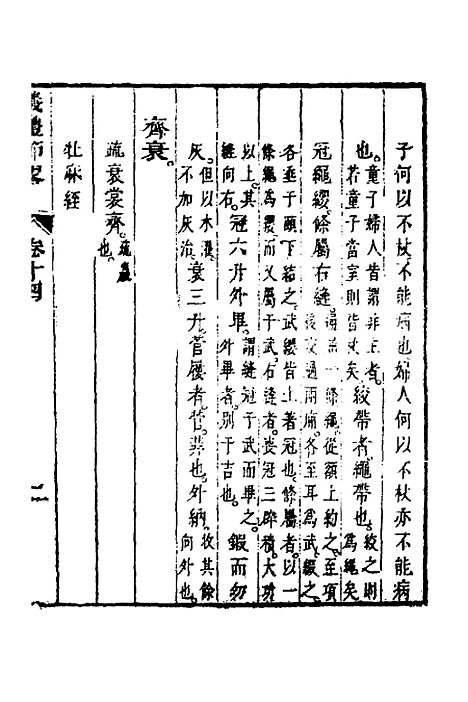 子何以不杖不能病也婦人何以不杖亦不能病
也。童子婦人皆謂非主者。若童子當室則皆杖矣。絞帶者繩帶也。絞之則為繩矣
冠繩纓條屬右縫一條繩從額上約之至項後交過兩廂各至耳為武綴之
各垂于頤下結之武纓皆上著冠也條屬者以一條繩為纓而又屬于武右縫者按冠三辟積大功
以上其縫向右。冠六升外畢。謂縫冠于武而畢之。外畢者別于吉也。鍛而勿
灰。但以水濯不加灰治。衰三升菅屨者菅菲也。外納。收其餘向外也
齊衰。
疏衰裳齊。疏麤也
牡麻絰
儀禮節畧 卷十四 二